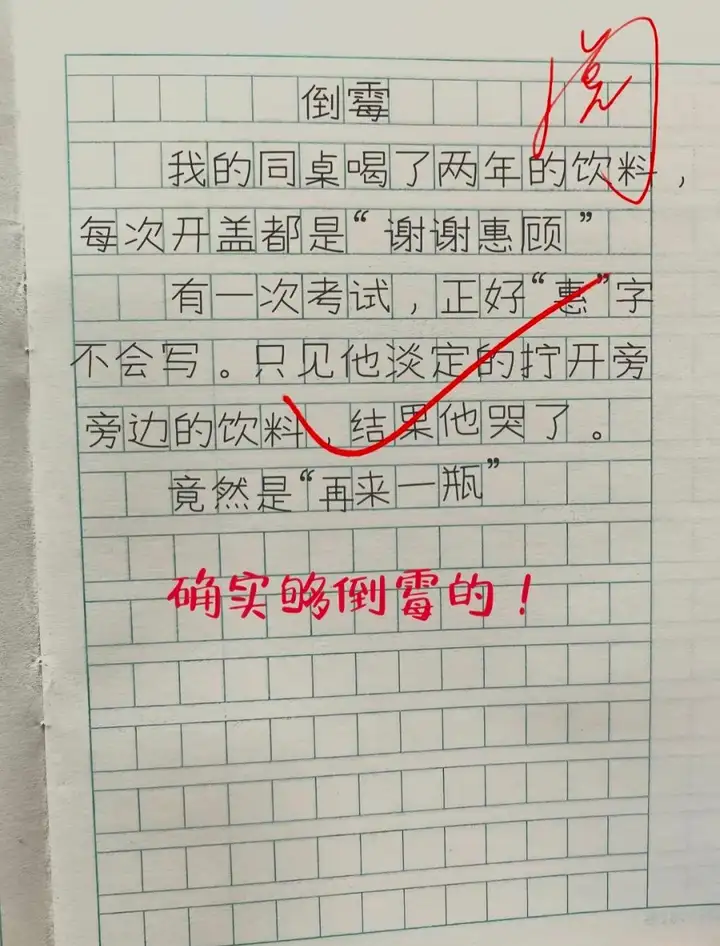 阅
倒霉
我的同桌喝了两年的饮料，
每次开盖都是“谢谢惠顾”
有一次考试，正好“惠”字
不会写。只见他淡定的拧开旁
旁边的饮料，结果他哭了。
竟然是“再来一瓶”
确实够倒霉的！